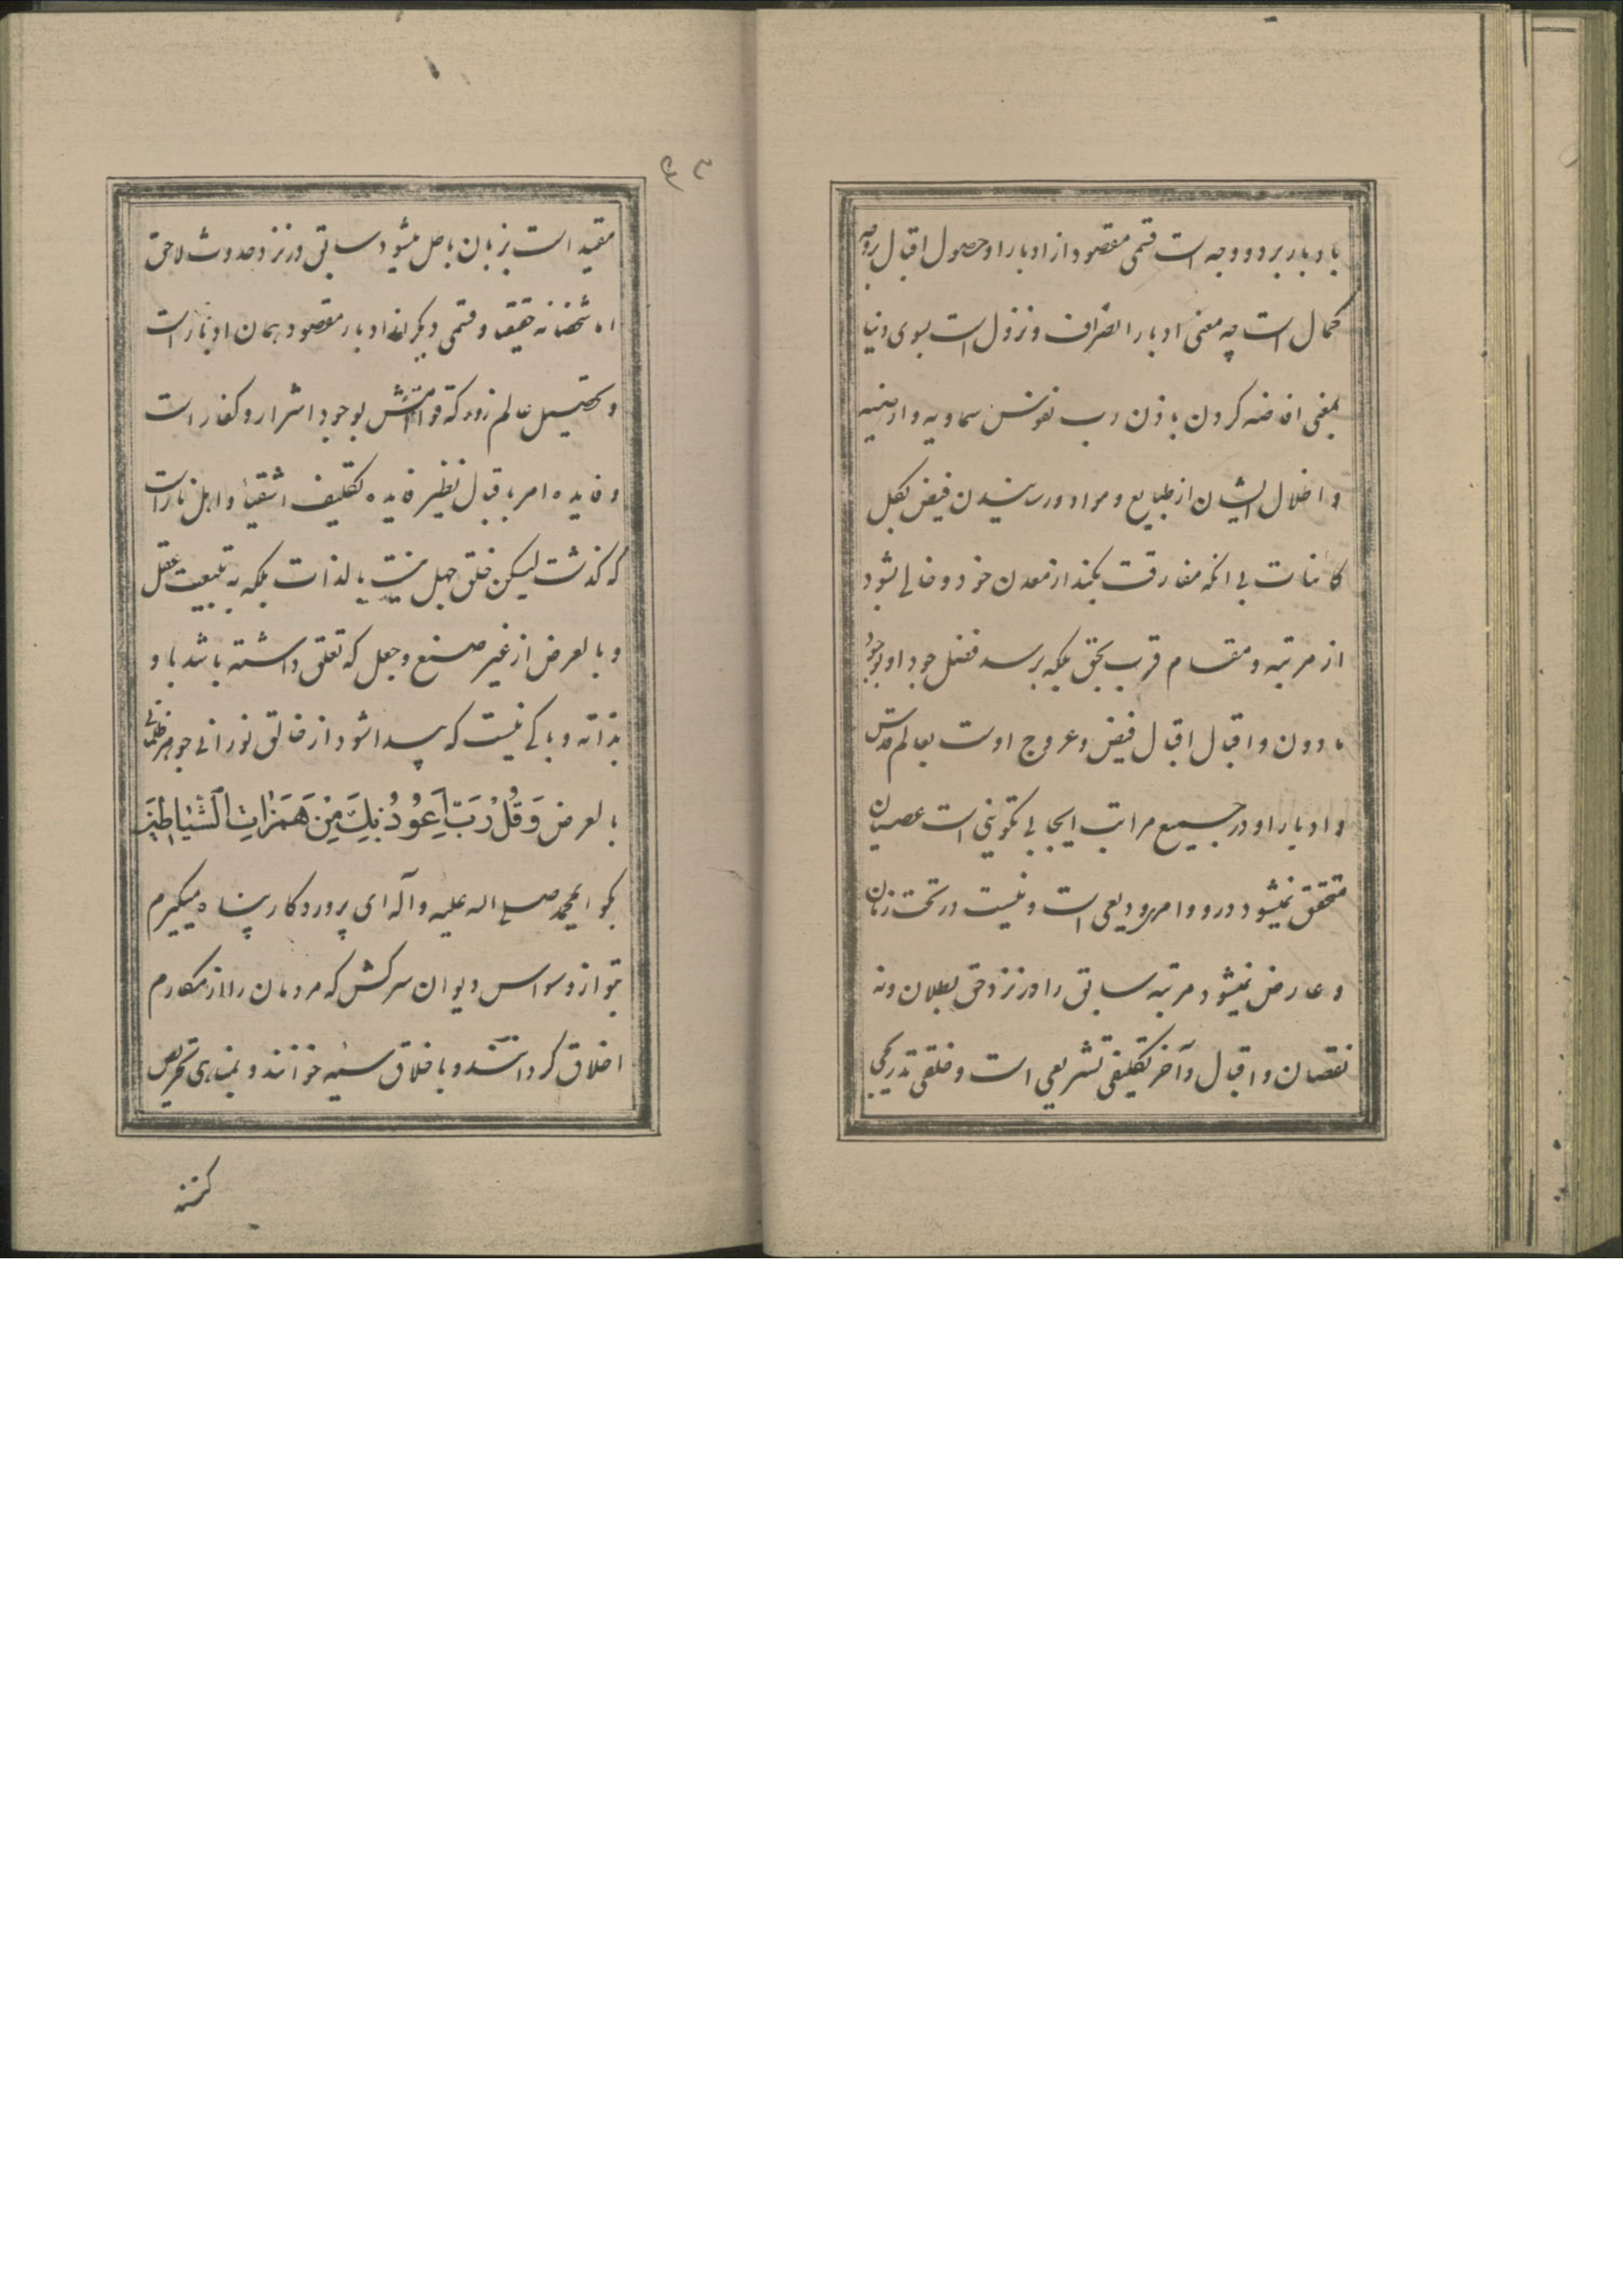 بادبار بر دو وجه است قسمی مقصود از ادبار او حصول اقبال بروجه
کمال است چه معنی ادبار انصراف و نزول است بسوی دنیا
بمعنی افاضه کردن باذن رب نفوس سماویه و ارضیه
و اظلال ایشان از طبایع و مواد و رسیدن فیض بکل
کائنات بی انکه مفارقت بکند از معدن خود و خالی شود
از مرتبه و مقام قرب بحق بلکه برسد فضل جود او بوجود
مادون و اقبال اقبال فیض و عروج اوست بعالم قدس
و ادبار او در جمیع مراتب ایجابی تکوینی است عصیان
متحقق نمیشود درو و امر ودیعی است و نیست در تحت زمان
و عارض نمیشود مرتبه سابق را در نزد حق بطلان و نه
نقصان و اقبال و آخر تکلیفی تشریعی است و خلقی تدریجی
۴۳
مقید است بزمان باطل میشود سابق در نزد حدوث لاحق
اما شخصا نه حقیقة و قسمی دیگر ادبار مقصود همان ادبار است
و تحصیل عالم زور که قوامش بوجود اشرار و کفار است
و فایده امر باقبال نظیر فایده تکلیف اشقیا و اهل نار است
که گذشت لیکن خلق جهل نیست بالذات بلکه به تبعیت عقل
و بالعرض از غیر صنع و جعل که تعلق داشته باشد باو
بذاته و باکی نیست که پیدا شود از خالق نورانی جوهر ظلمانی
بالعرض وَقُلْ رَبِّ اَعُوذُ بِكَ مِنْ هَمَزاتِ الشَّیاطینِ
بگو ایمحمد صلی اله علیه و آله ای پروردکار پناه میکیرم
بتو از وسواس دیوان سرکش که مردمان را از مکارم
اخلاق کردانند و باخلاق سیئه خوانند و بمناهی تحریص
کنند